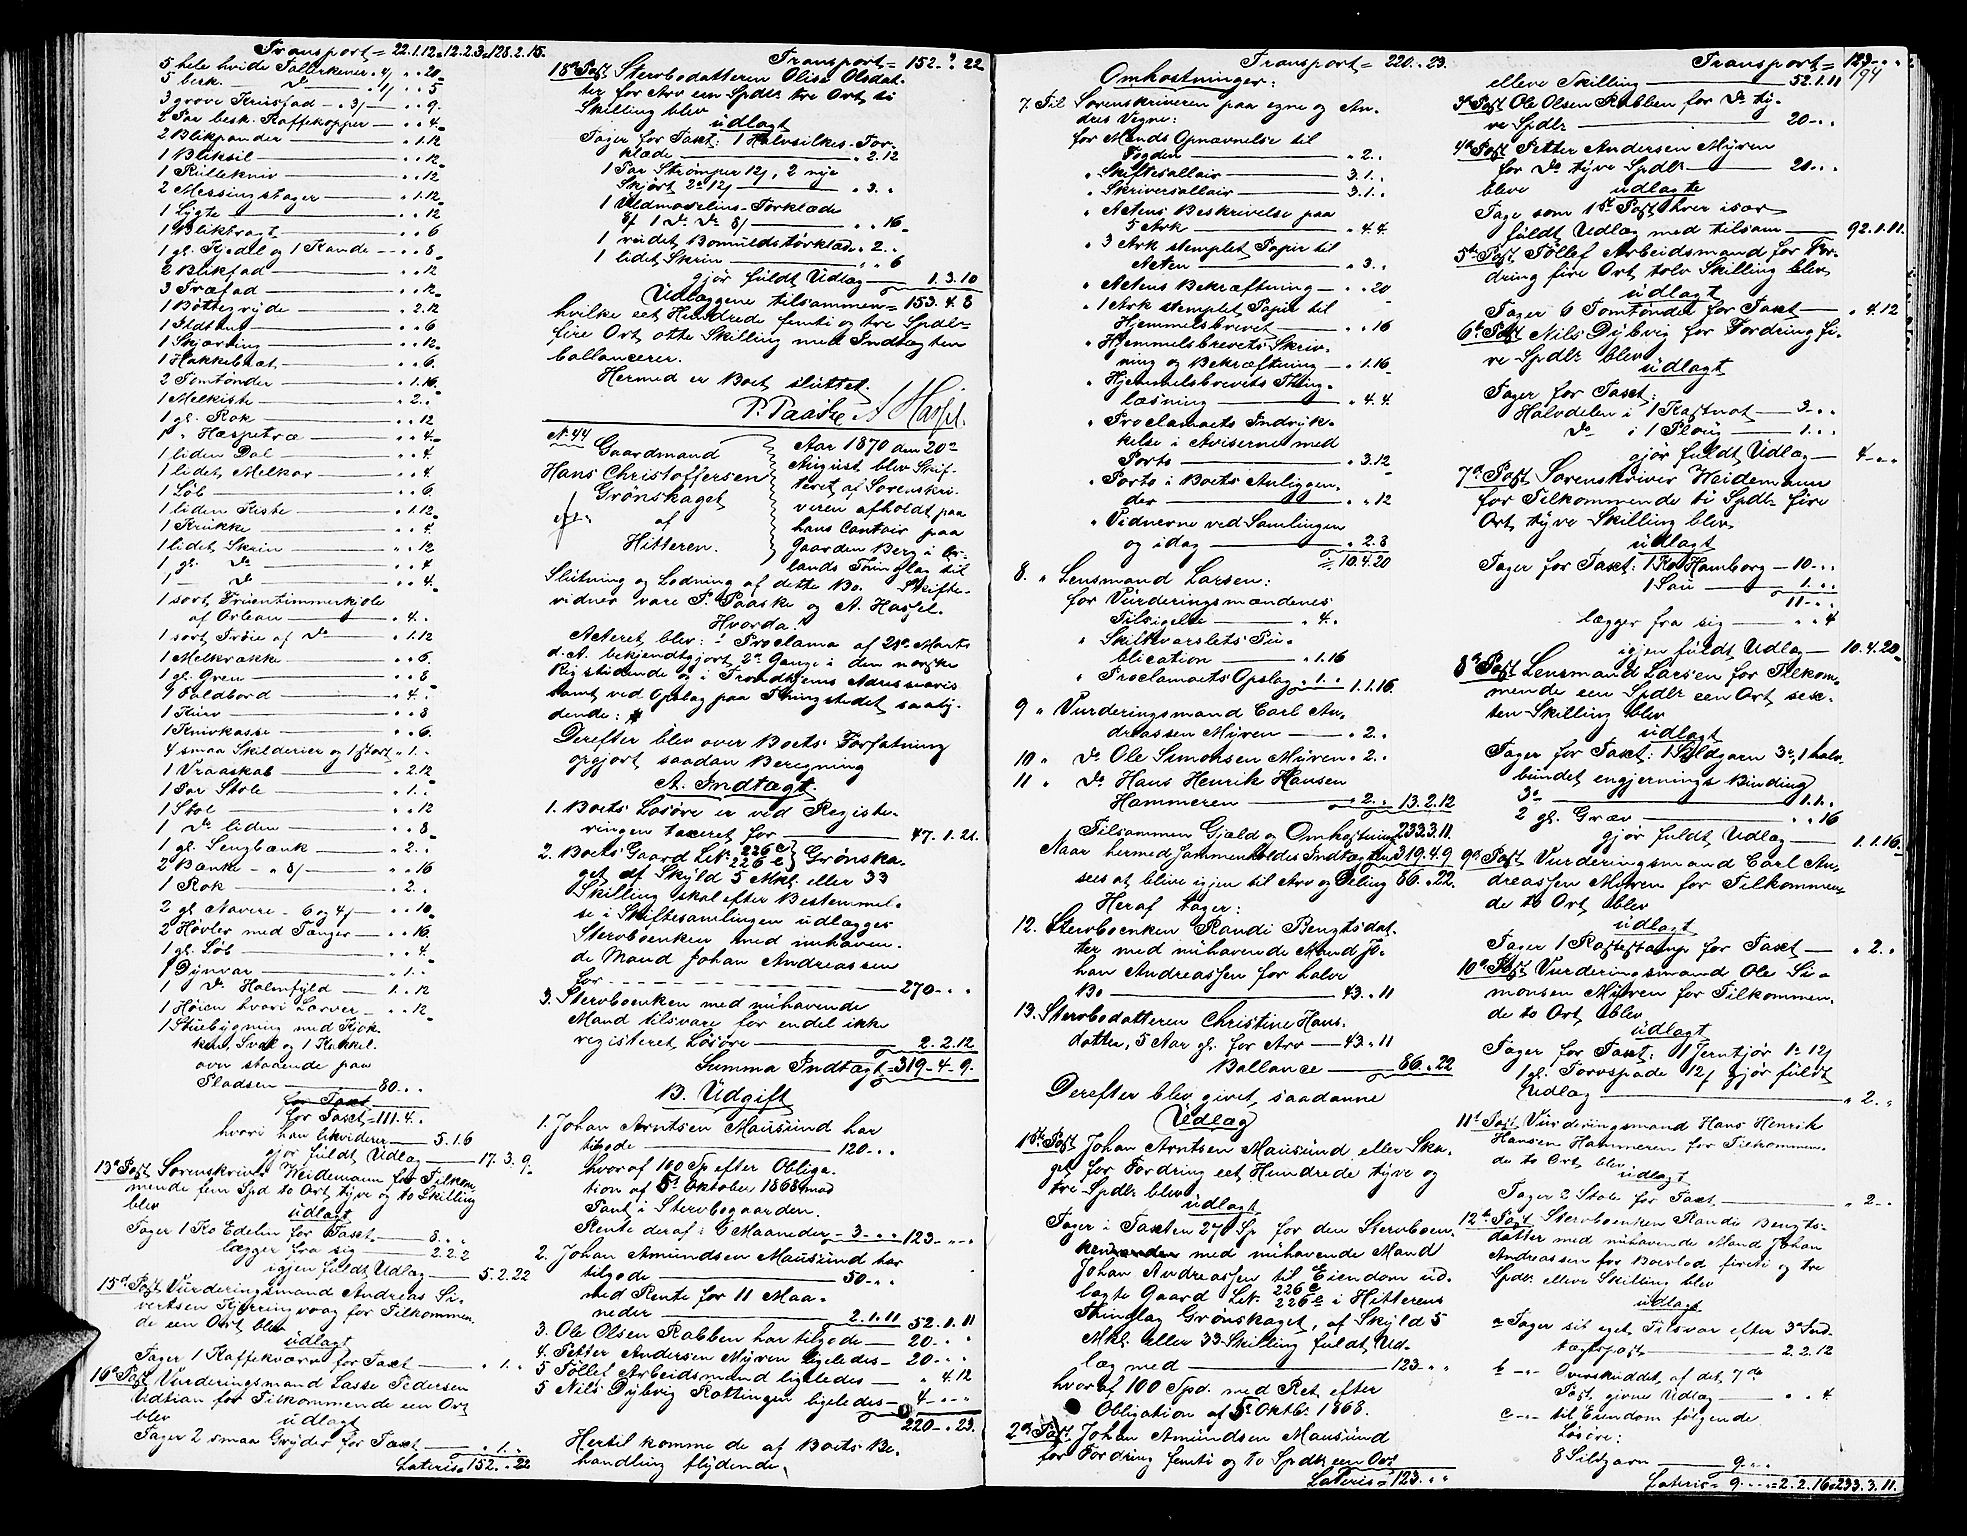 Transport = 22.1.12 = 12.2.3 = 128.2.15.
5 hele hvide Tallerkener 4/ " " 20
5 besk. — Do — 1/ — " " 5
3 grove Krusfad — 3/ — " " 9
2 Par besk. Kaffekopper — " " 4
2 Blikpander — " 1.12
1 Bliksil — " " 12
1 Rullekniv — " " 12
2 Messingstager — " 1.12
1 Lygte — " " 12
1 Bliktragt — " " 6
1 gl. Kjedel og 1 Kande — " " 8
2 Blikfad — " " 12
3 Træfad — " " 12
1 Bøttegryde — " 2.12
1 Ildtang — " " 6
1 Skjærding — " " 12
1 Hakkebræt — " " 6
2 Tomtønder — " 1.16
1 Melkiste — " 2 "
1 gl. Rok — " " 12
1 " Hæspetræ — " " 4
1 liden Dal — " " 4
1 lidet Melkar — " " 4
1 Løb — " " 6
1 liden Kiste — " 1.12
1 Krukke — " " 4
1 lidet Skrin — " " 12
1 gl. Do — " " 4
1 — Do — " " 4
1 sort Fruentimmerkjole
af Orlean — " 4 "
1 sort Trøie af Do — " 1.12
1 Melkrakke — " " 6
1 gl. Gren — " " 8
9 Faldbord — " 4 "
1 Kurv — " " 8
1 Knivkasse — " " 6
4 smaa Skilderier og 1 stort " 1 "
1 Vraaskab — " 2.12
1 Par Stole — " 1 "
1 Stol — " " 12
1 Do liden — " " 8
1 gl. Sengbænk — " 2 "
2 Bænke — " 8/ — " " 16
1 Rok — " 2 "
2 gl. Navere — 6 og 4/ — " " 10
2 Høvler med Tænger — " " 16
1 gl. Løb — " " 4
1 Dynvar — " 1 "
1 Do Halmfyld — 1 " 12
1 Høien hvori Larver — " " 12
1 Stuebygning med Kjøk-
ken, Sval og 1 Kakkel-
ovn staaende paa
Pladsen — 80 " "
for Taxt = 111.4 "
hvori han likviderer — 5.1.6
gjør fuldt Udlæg — 17.3.9
13de Post Sorenskriver Heidemann for Tilkom-
mende fem Spd to Ort tyve og to Skilling
blev
udlagt
Tager 1 Ko Edelin for Taxt — 8 " "
lægger fra sig — 2.2.2
igjen fuldt Udlæg — 5.2.22
15de Post Vurderingsmand Andreas Si-
vertsen Kjerringvaag for Tilkommen-
de een Ort blev
udlagt
Tager 1 Kaffekværn for Taxt — " 1 "
16de Post Vurderingsmand Lasse Pedersen
Udtian for Tilkommende een Ort
blev udlagt
Tager 2 smaa Gryder for Taxt — " 1 "
Lateris 152 " 22
Transport = 152 " 22
18de Post Stervbodatteren Olise Olsdat-
ter for Arv een Spdlr tre Ort ti
Skilling blev
udlagt
Tager for Taxt: 1 Halvsilkes-Tør-
klæde — " 2.12
1 Par Strømper 12/, 2 nye
Skjørt 2o 12/ — " 3 "
1 Uldmoselins-Tørklæde
8/ 1 Do Do 8/ — " " 16
1 rudet Bomuldstørklæde " 2 "
1 lidet Skrin — " " 6
gjør fuldt Udlæg — 1.3.10
Udlæggene tilsammen = 153.4.8
hvilke eet Hundrede femti og tre Spdlr
fire Ort otte Skilling med Indtægten
ballancerer.
Hermed er Boet sluttet.
P. Paaske A Hasfel.
No 44
Gaardmand
Hans Christoffersen
Grønskaget
af
Hitteren.
Aar 1870 den 20de
August blev Skif-
teret af Sorenskri-
veren afholdt paa
hans Contoir paa
Gaarden Berg i Ør-
lands Thinglag til
Slutning og Lodning af dette Bo. Skifte-
vidner vare P. Paaske og A. Hasfel.
Hvorda:
Acteret blev: Proclama af 21de Marts
d. A. bekjendtgjort 2de Gange i den norske
Rigstidende og i Trondhjems Adresseavis
samt ved Opslag paa Thingstedet saaly-
dende:
Derefter blev over Boets Forfatning
opgjort saadan Beregning
A. Indtægt.
1. Boets Løsøre er ved Registe-
ringen taxeret for — 47.1.21.
2. Boets Gaard Lit. 226 c 226 e Grønska-
get af Skyld 5 Mkl eller 33
Skilling skal efter Bestemmel-
se i Skiftesamlingen udlægges
Stervboenken med inhaven-
de Mand Johan Andreassen
for — 270 " "
3. Stervboenken med nuhavende
Mand tilsvare for endel ikke
registeret Løsøre — 2.2.12
Summa Indtægt = 319-4-9.
B. Udgift
1. Johan Arntsen Mausund har
tilgode — 120 " "
hvoraf 100 Sp efter Obliga-
tion af 5te Oktober 1868 med
Pant i Stervbogaarden.
Rente deraf: 6 Maaneder — 3 " " 123 " "
2. Johan Amundsen Mausund har
tilgode — 50 " "
med Rente for 11 Maa-
neder — 2.1.11 52.1.11
3. Ole Olsen Rabben har tilgode — 20 " "
4. Petter Andersen Myren ligeledes — 20 " "
5 Tollef Arbeidsmand ligeledes — " 4.12
5 Nils Dybvig Rottingen ligeledes — 4 " "
220 " 23.
Hertil komme de af Boets Be-
handling flydende
Transport = 220 " 23.
Omkostninger:
7. Til Sorenskriveren paa egne og An-
dres Vegne:
for Mænds Opnævnelse til
Fogden — " 2 "
" Skiftesallair — 3.1 "
" Skriversallair — 3.1 "
" Actens Beskrivelse paa
5 Ark — " 4.4
" 3 Ark stemplet Papir til
Acten — " 3 "
" Actens Bekræftning — " " 20
" 1 Ark stemplet Papir til
Hjemmelsbrevet — " " 16
" Hjemmelsbrevets Skriv-
ning og Bekræftning — " 1.16
" Hjemmelsbrevets Thing-
læsning — " 4.4
" Proclamaets Indryk-
kelse i Aviserne med
Porto — " 3.12
" Porto i Boets Anliggen-
der — " " 12
" Vidnerne ved Samlingen
og idag — " 2.8
= 10.4.20
8. " Lensmand Larsen:
for Vurderingsmændenes
Tilsigelse — " 4 "
" Skiftevarslets Pu-
blication — " 1.16
" Proclamaets Opslag " 1 " 1.1.16.
9 " Vurderingsmand Carl An-
dreassen Myren — " 2 "
10 " Do Ole Simonsen Myren " 2 "
11 " Do Hans Henrik Hansen
Hammeren — " 2 " 13.2.12
Tilsammen Gjæld og Omkostning 233.3.11.
Naar hermed sammenholdes Indtægten 319.4.9
sees at blive igjen til Arv og Deling 86 " 22.
Heraf tager:
12. Stervboenken Randi Bengtsdat-
ter med nuhavende Mand Jo-
han Andreassen for halve
Bo — 43 " 11
13. Stervbodatteren Christine Hans-
datter, 5 Aar gl. for Arv — 43 " 11
Ballance — 86 " 22
Derefter blev givet saadanne
Udlæg
1ste Post Johan Arntsen Mausund eller Ska-
get for Fordring eet Hundrede tyve og
tre Spdlr blev
udlagt
Tager i Taxten 270 Sp for den Stervboen-
ken med nuhavende Mand
Johan Andreassen til Eiendom ud-
lagte Gaard Lit. 226 c 226 e i Hitterens
Thinglag Grønskaget, af Skyld 5
Mkl. eller 33 Skilling fuldt Ud-
læg med — 123 " "
hvoraf 100 Spd. med Ret efter
Obligation af 5te Oktbr. 1868.
2den Post Johan Amundsen Mausund
for Fordring femti og to Spdlr een Ort
Lateris = 123 " "
Transport = 123 " "
194
elleve Skilling — 52.1.11
3die Post Ole Olsen Rabben for Do ty-
ve Spdlr — 20 " "
4de Post Petter Andersen Myren
for Do tyve Spdlr — 20 " "
bleve udlagte
Tage som 1ste Post hver især
fuldt Udlæg med tilsam — 92.1.11.
5te Post Tollef Arbeidsmand for For-
dring fire Ort tolv Skilling blev
udlagt
Tager 6 Tomtønder for Taxt — " 4.12
6te Post Nils Dybvig for Fordring fi-
re Spdlr blev
udlagt
Tager for Taxt:
Halvdelen i 1 Kastnot — 3 " "
Do i 1 Ploug — 1 " "
gjør fuldt Udlæg — 4 " "
7de Post Sorenskriver Heidemann
for Tilkommende ti Spdlr fire
Ort tyve Skilling blev
udlagt
Tager for Taxt: 1 Ko Hamborg — 10 " "
1 Sau — 1 " "
11 " "
lægger fra sig — " " 4
igjen fuldt Udlæg — 10.4.20
8de Post Lensmand Larsen for Tilkom-
mende een Spdlr een Ort sex-
ten Skilling blev
udlagt
Tager for Taxt: 1 Sildgarn 3o, 1 halv-
bundet engjernings Binding
3o — 1.1 "
2 gl. Græv — " " 16
gjør fuldt Udlæg — 1.1.16
9de Post Vurderingsmand Carl An-
dreassen Myren for Tilkommen-
de to Ort blev
udlagt
Tager 1 Rossestamp for Taxt — " 2 "
10de Post Vurderingsmand Ole Si-
monsen Myren for Tilkommen-
de to Ort blev
udlagt
Tager for Taxt: 1 Jerntjor 1o 12/
1 gl. Torvspade 12/ gjør fuldt
Udlæg — " 2 "
11te Post Vurderingsmand Hans Henrik
Hansen Hammeren for Tilkommen-
de to Ort blev
udlagt
Tager 2 Stole for Taxt — " 2 "
12te Post Stervboenken Randi Bengts-
datter med nuhavende Mand Johan
Andreassen for Boeslod fireti og tre
Spdlr elleve Skilling blev
udlagt
a Tager sit eget Tilsvar efter 3die Ind-
tægtspost — 2.2.12
b — " Overskuddet af det 7de
Post givne Udlæg — " " 4
c — " til Eiendom følgende
Løsøre:
8 Sildgarn — 9 " "
Lateris = 9 " " = 2.2.16 = 233.3.11.